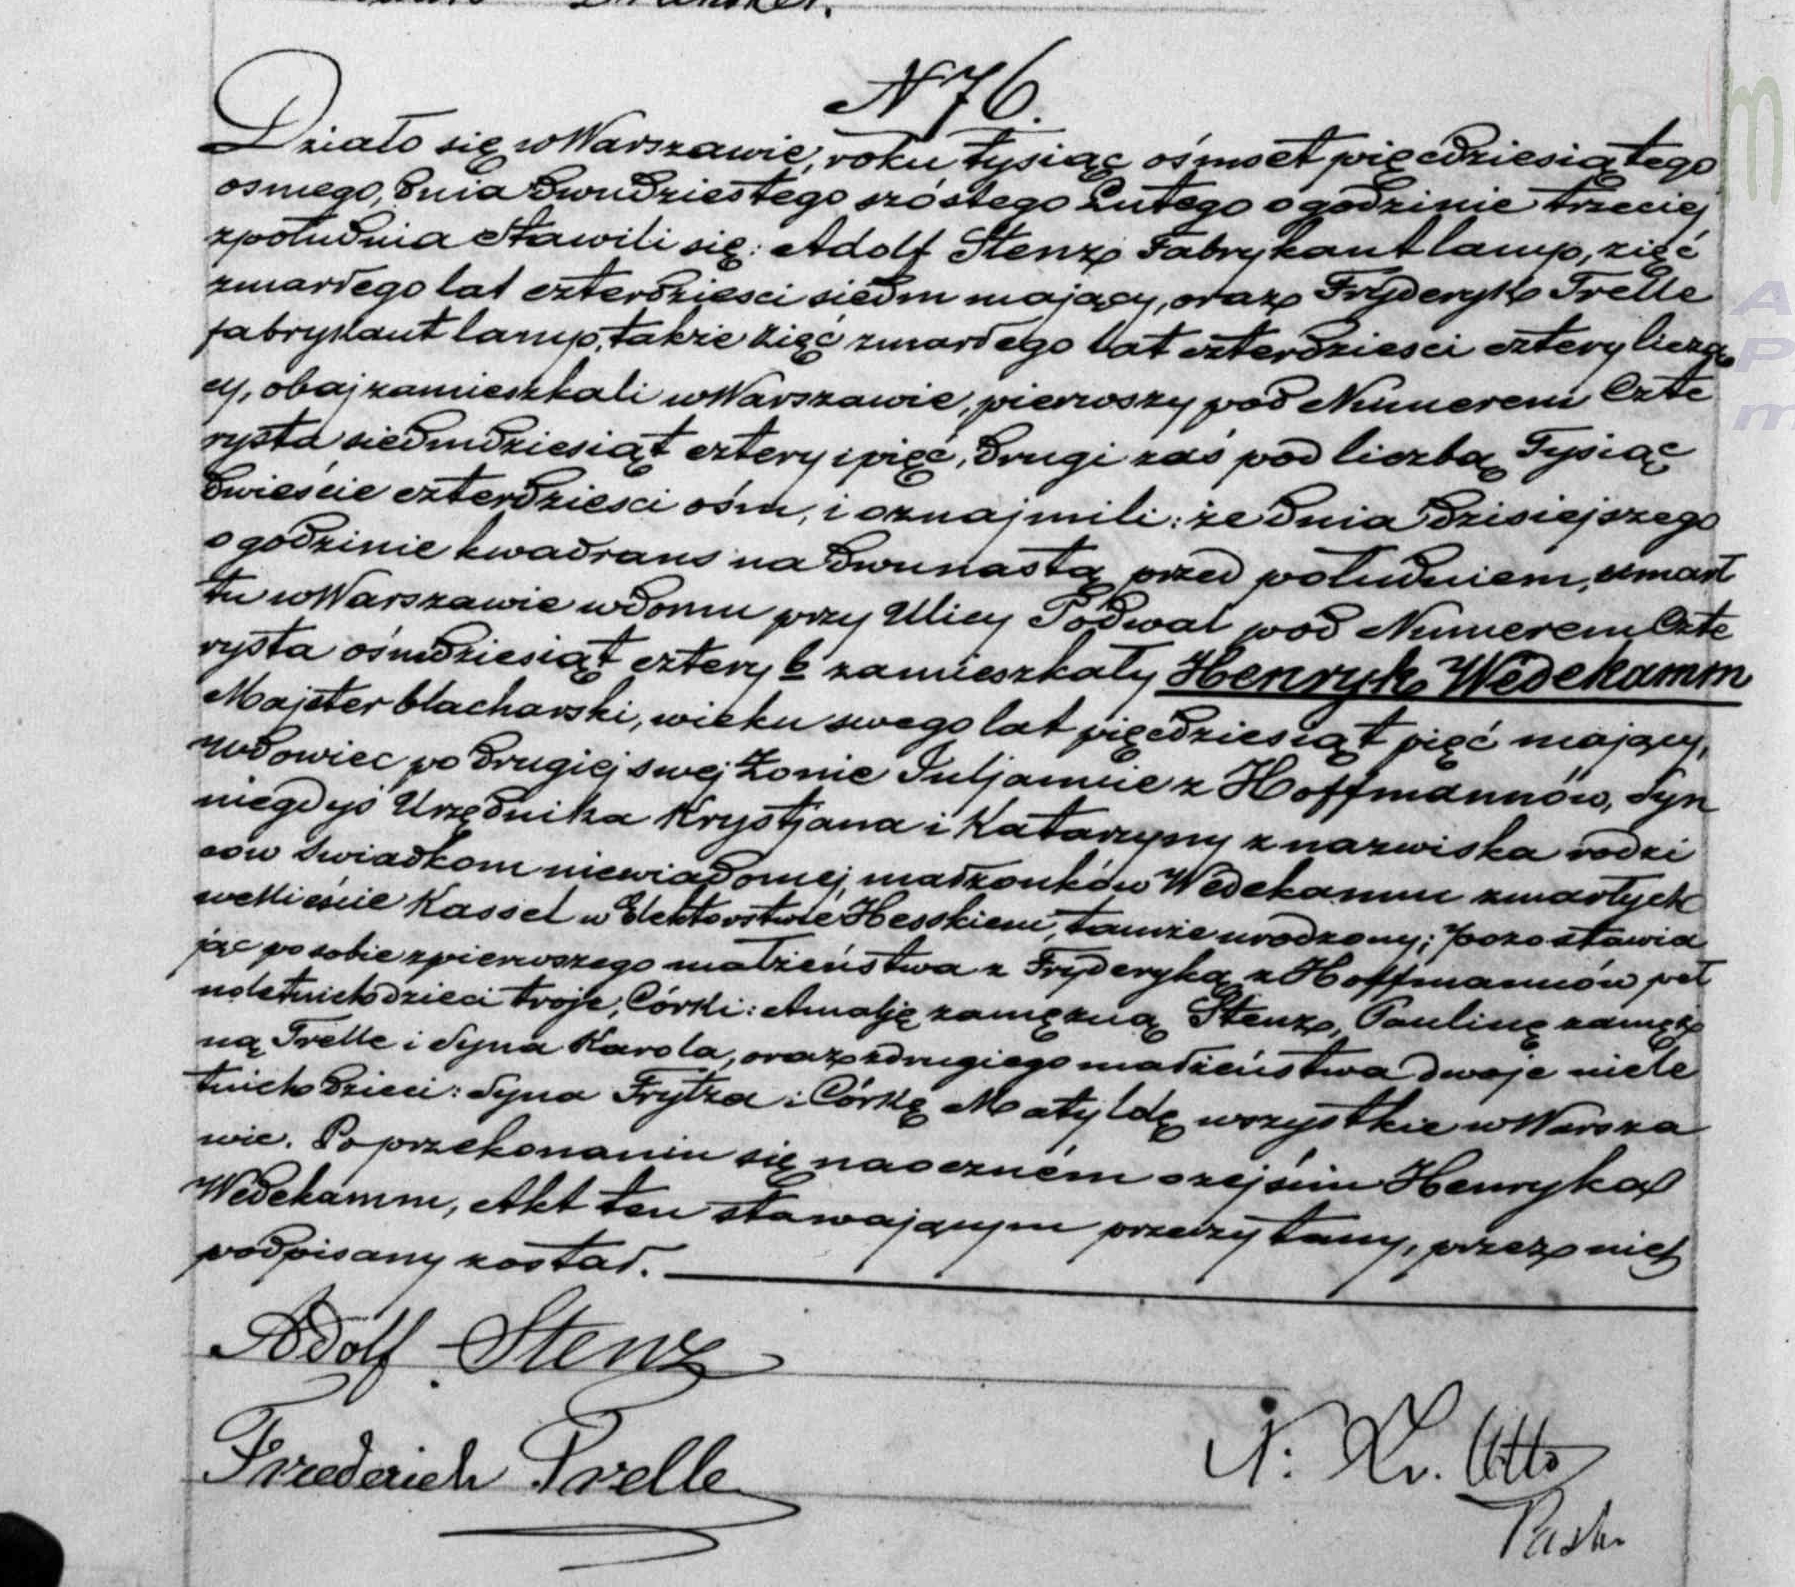 N 76.
Działo się w Warszawie, roku tysiąc ośmset pięćdziesiątego
osmego, dnia dwudziestego szóstego Lutego o godzinie trzeciej
z południa Stawili się: Adolf Stenz Fabrykant lamp, zięć
zmarłego lat czterdziesci siedm mający, oraz Fryderyk Trelle
fabrykant lamp, także zięć zmarłego lat czterdziesci cztery liczą
cy, obaj zamieszkali w Warszawie, pierwszy pod Numerem Czte
rysta siedmdziesiąt cztery i pięć, drugi zaś pod liczbą Tysiąc
dwieście czterdziesci ośm, i oznajmili: że dnia dzisiejszego
o godzinie kwadrans na dwunastą przed południem, umarł
tu w Warszawie w domu przy Ulicy Podwal pod Numerem Czte
rysta ośmdziesiąt cztery b zamieszkały Henryk Wedekamm
Majster blacharski, wieku swego lat pięćdziesiąt pięć mający,
Wdowiec po drugiej swej Żonie Juljannie z Hoffmannów, Syn
niegdyś Urzędnika Krystjana i Katarzyny z nazwiska rodzi
ców świadkom niewiadomej, małżonków Wedekamm zmarłych
w Mieście Kassel w Elektorstwie Hesskiem, tamże urodzony; pozostawia
jąc po sobie z pierwszego małżeństwa z Fryderyką z Hoffmannów peł
noletnich dzieci troje, Córki: Amalję zamężną Stenz, Paulinę zamęż
ną Trelle i Syna Karola, oraz z drugiego małżeństwa dwoje niele
tnich dzieci: Syna Frytza i Córkę Matyldę wszystkie w Warsza
wie. Po przekonaniu się naoczném o zejściu Henryka
Wedekamm, Akt ten stawającym przeczytany, przez nich
podpisany został.
Adolf Stenz
Frederich Trelle
N: Otto
Past.